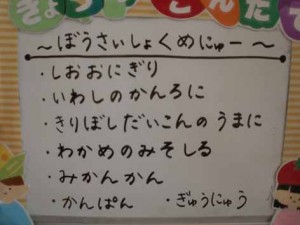 きょう の こんだて
～ぼうさいしょくめにゅー～
・しおおにぎり
・いわしのかんろに
・きりぼしだいこんのうまに
・わかめのみそしる
・みかんかん
・かんぱん ・ぎゅうにゅう